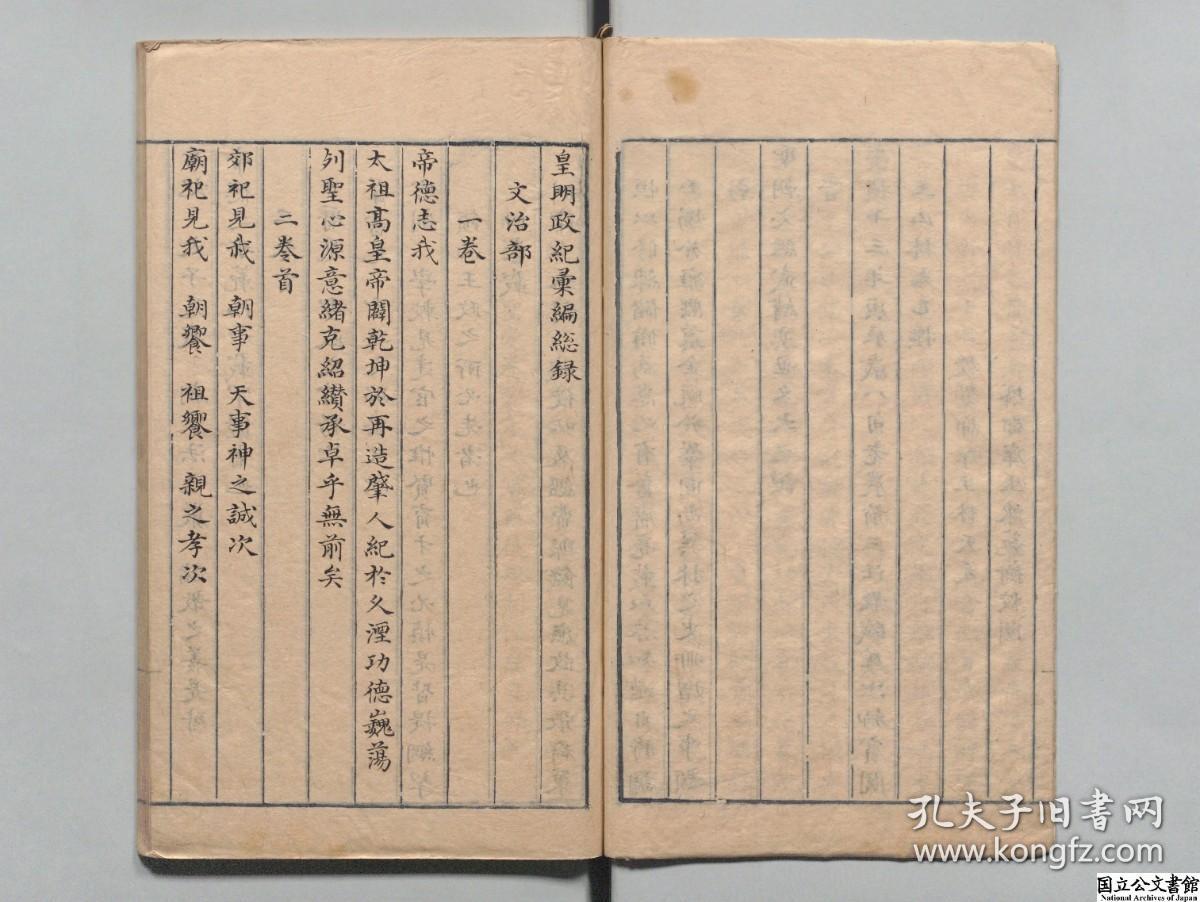 皇明政紀彙編総录
文治部
一卷
帝德志我
太祖高皇帝闢乾坤於再造肇人紀於久湮功德巍蕩
列聖心源意緒克紹纘承卓乎無前矣
二卷首
郊祀見我 朝事 天事神之誠次
廟祀見我 朝饗 祖饗 親之孝次
孔夫子旧书网
www.kongfz.com
国立公文書館
National Archives of Japan